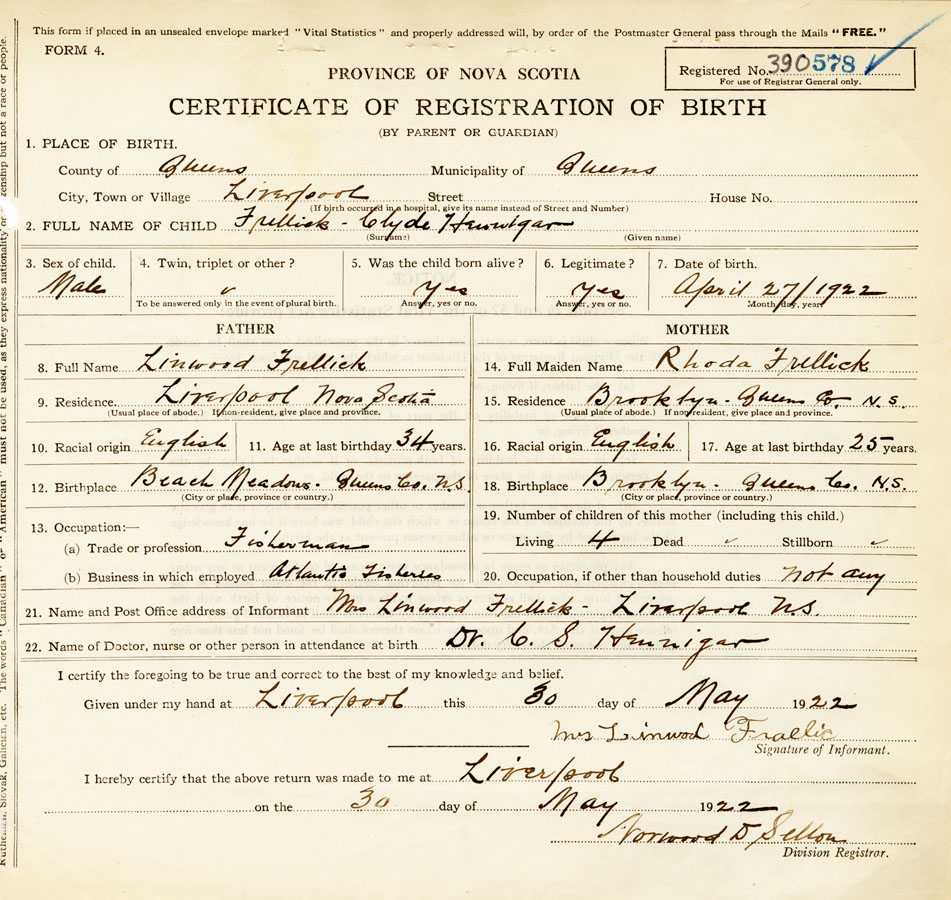 This form if placed in an unsealed envelope marked "Vital Statistics" and properly addressed will, by order of the Postmaster General pass through the Mails "FREE."
FORM 4.
Registered No. 390578
For use of Registrar General only.
PROVINCE OF NOVA SCOTIA
CERTIFICATE OF REGISTRATION OF BIRTH
(BY PARENT OR GUARDIAN)
1. PLACE OF BIRTH.
County of Queens Municipality of Queens
City, Town or Village Liverpool Street House No.
(If birth occurred in a hospital, give its name instead of Street and Number)
2. FULL NAME OF CHILD Frellick - Clyde Hennigar
(Surname) (Given name)
3. Sex of child. 4. Twin, triplet or other? 5. Was the child born alive? 6. Legitimate? 7. Date of birth.
Male Yes Yes April 27/1922
To be answered only in the event of plural birth. Answer, yes or no. Answer, yes or no. Month, day, year.
FATHER MOTHER
8. Full Name Linwood Frellick 14. Full Maiden Name Rhoda Frellick
9. Residence. Liverpool Nova Scotia 15. Residence Brooklyn - Queens Co. N.S.
(Usual place of abode.) If non-resident, give place and province. (Usual place of abode.) If non resident, give place and province.
10. Racial origin English 11. Age at last birthday 34 years. 16. Racial origin English 17. Age at last birthday 25 years.
12. Birthplace Beach Meadows - Queens Co. N.S. 18. Birthplace Brooklyn - Queens Co. N.S.
(City or place, province or country.) (City or place, province or country.)
13. Occupation:— 19. Number of children of this mother (including this child.)
(a) Trade or profession Fisherman Living 4 Dead Stillborn
(b) Business in which employed Atlantic Fisheries 20. Occupation, if other than household duties not any
21. Name and Post Office address of Informant Mrs Linwood Frellick - Liverpool N.S.
22. Name of Doctor, nurse or other person in attendance at birth Dr. C. S. Hennigar
I certify the foregoing to be true and correct to the best of my knowledge and belief.
Given under my hand at Liverpool this 30 day of May 1922
Mrs Linwod Frallic
Signature of Informant.
I hereby certify that the above return was made to me at Liverpool
on the 30 day of May 1922
Norwood D Sellon
Division Registrar.